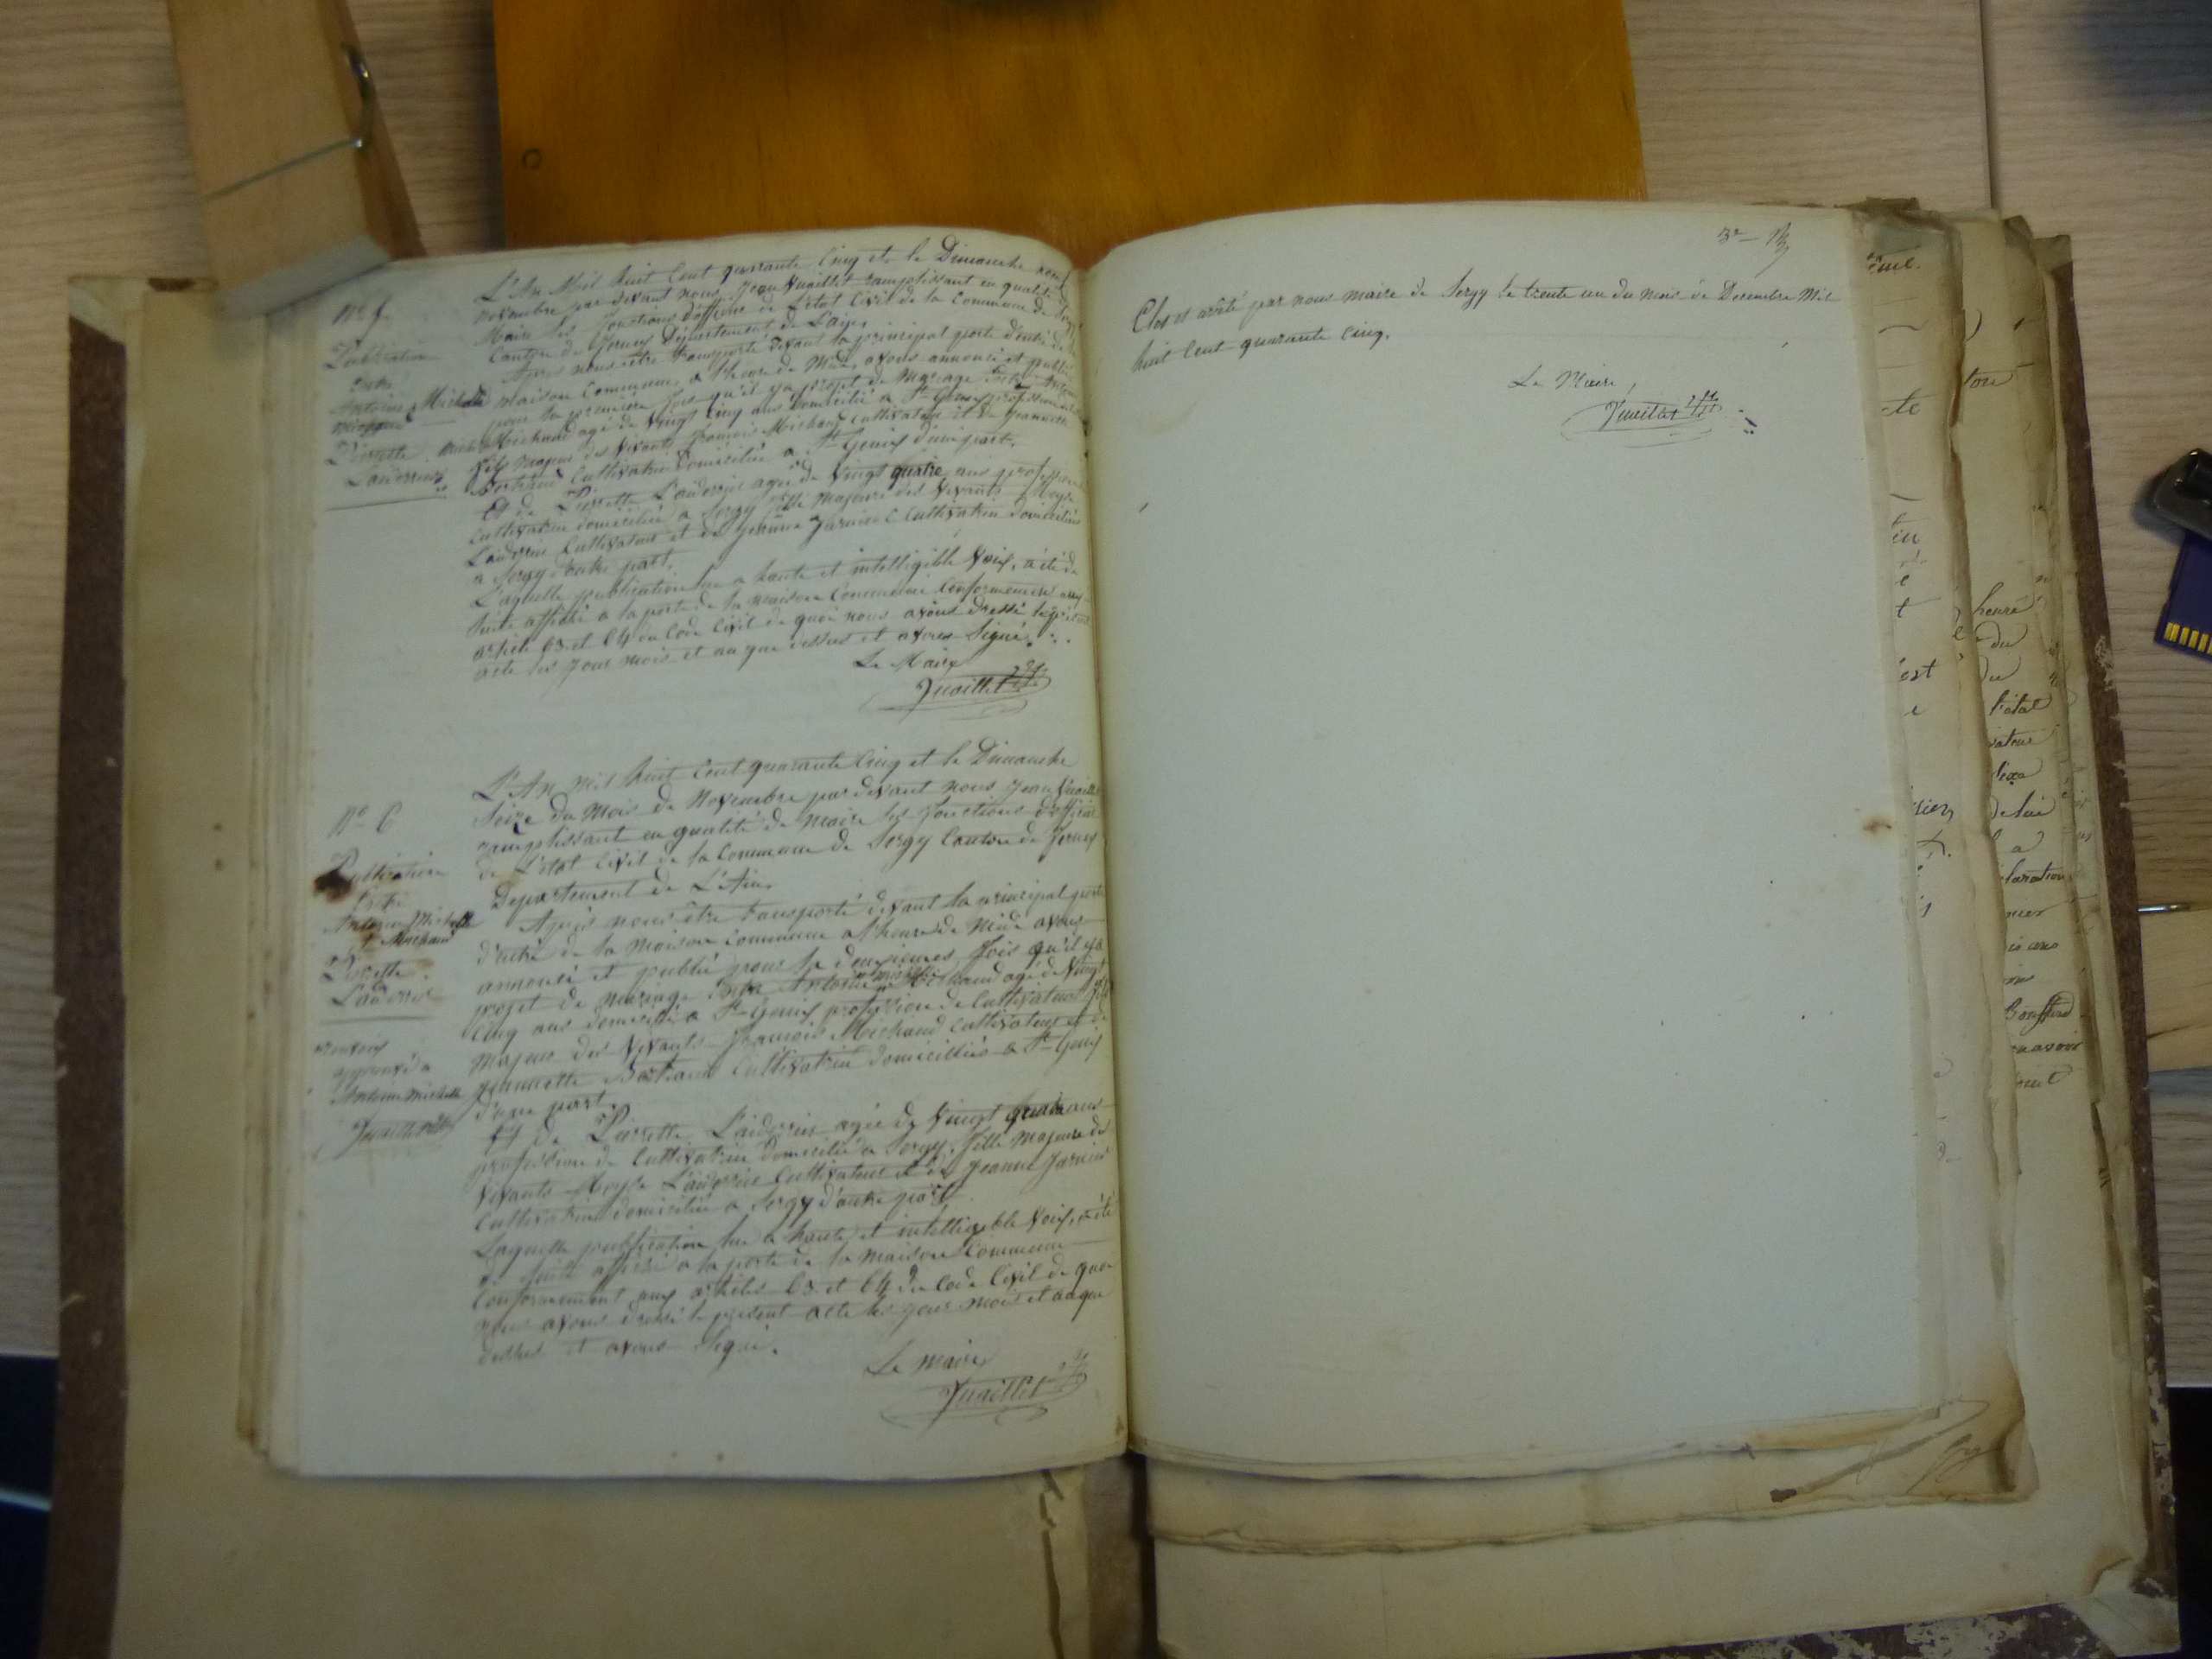 N° 5.
Publication
Entre
Antoine Michelle
Michaud
Pierrette
Laverrière
L'An Mil huit Cent quarante Cinq et le Dimanche neuf
novembre par devant nous Jean Vuaillet ramplissant en qualité de
Maire les fonctions d'officier de L'état Civil de la Commune de Sergy
Canton de Ferney Département de L'ain,
Après nous être transporté devant la principal porte d'entré de la
maison Commune a l'heure de Midi, avons annoncé et publié
pour la première fois qu'il y a projet de Mariage Entre Antoine
Michaud agé de Vingt Cinq ans Domicilié a St Genis profession de
fils majeur des Vivants françois Michaud Cultivateur et de Jeannette
Bertrand Cultivatrice Domiciliés a St Genis d'une part,
Et de Pierrette agée de Vingt quatre ans profession
Cultivatrice domiciliée a Sergy fille majeure des Vivants Moyse
Cultivateur et de Jeanne Cultivatrice domiciliés
a Sergy d'autre part,
L'aquelle publication lue a haute et intelligible Voix, a été de
suite affiché a la porte de la maison Commune conformement aux
article 63 et 64 du Code Civil de quoi nous avons dressé le présent
acte les jour mois et an que dessus et avons Signé.
Le Maire
Vuaillet
N° 6
Publication
Entre
Antoine Michelle
Michaud
Pierrette
renvoy
approuvé a
Antoine Michelle
Vuaillet
L'An mil huit Cent quarante Cinq et le Dimanche
Seize du Mois de Novembre par devant nous Jean Vuaillet
ramplissant en qualité de maire les fonctions d'officier
de L'état Civil de la Commune de Sergy Canton de Ferney
Departement de L'Ain,
Après nous être transporté devant la principal porte
d'entré de la Maison Commune a l'heure de Midi avons
annoncé et publié pour la deuxieme fois qu'il y a
projet de mariage Entre Antoine Michaud agé de Vingt
Cinq ans domicilié a St Genis profession de Cultivateur fils
majeur des Vivants françois Michaud Cultivateur et de
Jeannette Bertrand Cultivatrice domiciliés a St Genis
d'une part.
Et de Pierrette agée de Vingt quatre ans
profession de Cultivatrice domiciliée a Sergy, fille majeure des
Vivants Moyse Cultivateur et de Jeanne
Cultivatrice domiciliés a Sergy d'autre part
Laquelle publication lue a haute et intelligible Voix, a été
de suite affiché a la porte de la maison Commune
Conformement aux articles 63 et 64 du Code Civil de quoi
nous avons dressé le présent acte les jour mois et an que
dessus et avons Signé.
Le maire
Vuaillet
Clos et arrêté par nous maire de Sergy le trente un du mois de Decembre Mil
huit Cent quarante Cinq.
Le Maire,
Vuaillet